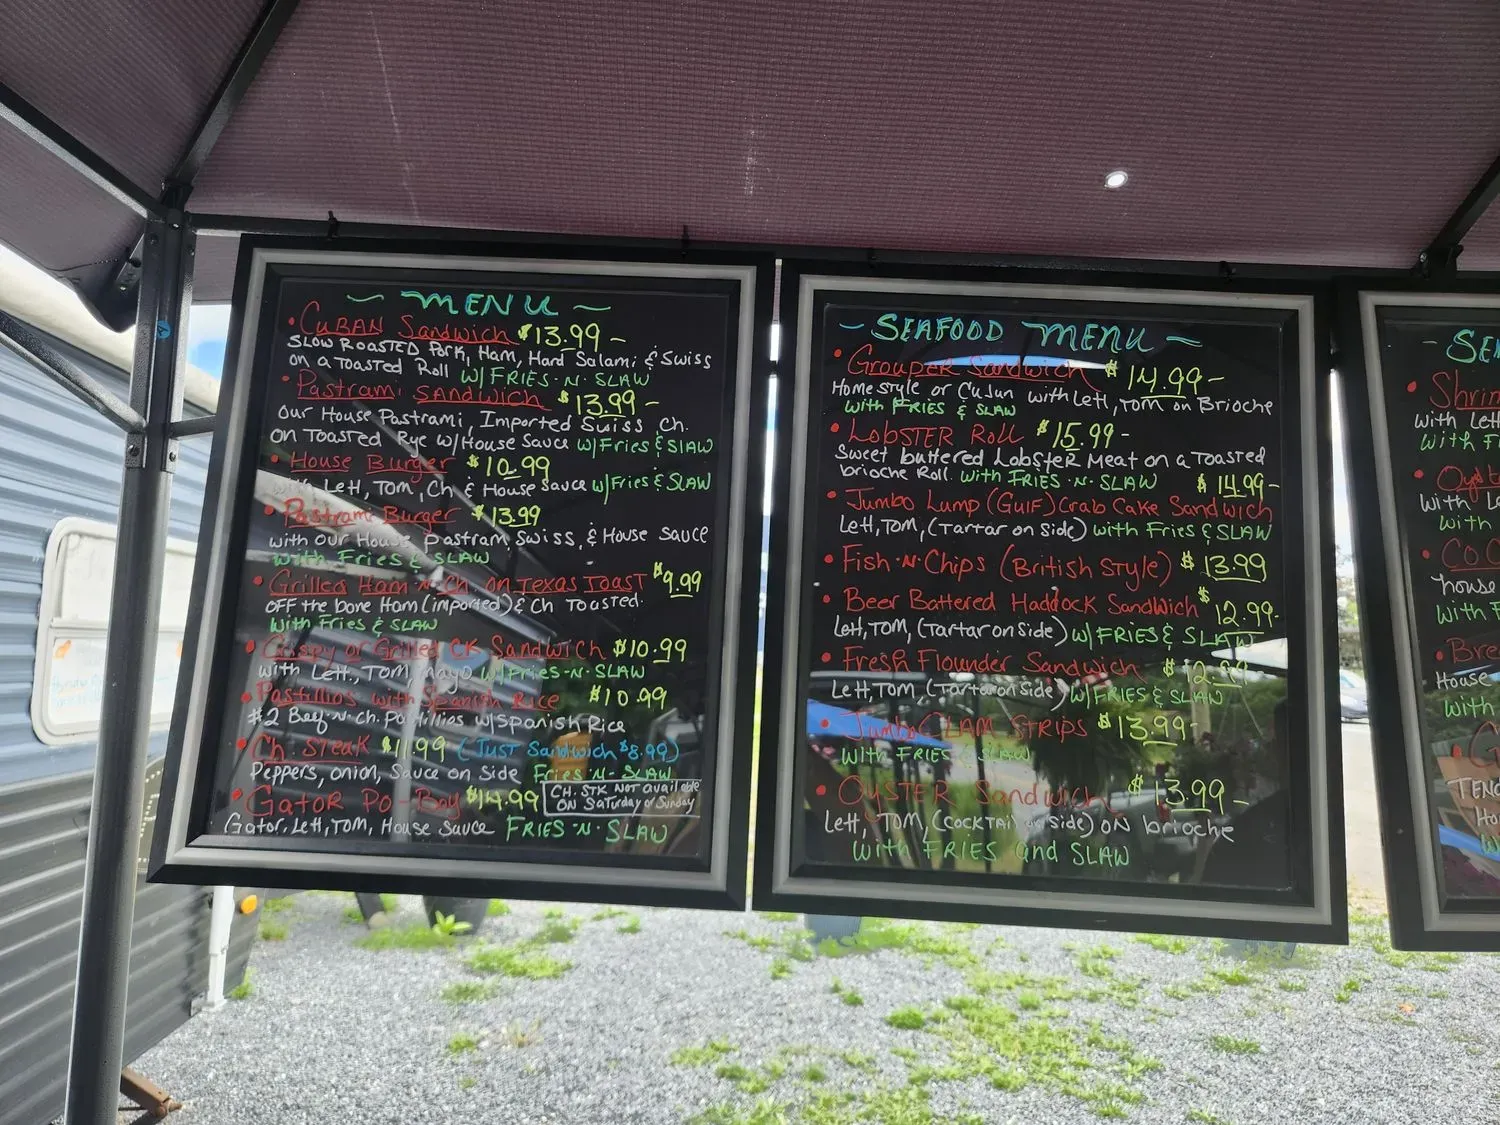 ~ MENU ~
• CUBAN Sandwich $13.99 -
SLOW ROASTED Pork, Ham, Hard Salami & Swiss
on a Toasted Roll w/ FRIES-N-SLAW
• Pastrami SANDWICH $13.99 -
Our House Pastrami, Imported Swiss Ch.
ON Toasted Rye w/House Sauce w/Fries & SLAW
• House Burger $10.99
with Lett, Tom, Ch & House Sauce w/Fries & SLAW
• Pastrami Burger $13.99
with our House Pastrami, Swiss, & House Sauce
with Fries & SLAW
• Grilled Ham-N-Ch on Texas Toast $9.99
OFF the bone Ham (imported) & Ch Toasted.
with Fries & SLAW
• Crispy or Grilled CK Sandwich $10.99
with Lett, TOM, mayo w/Fries-N-SLAW
• Pastillios with Spanish Rice $10.99
#2 Beef-N-Ch. Pastillias w/Spanish Rice
• Ch. Steak $11.99 (JUST Sandwich $8.99)
Peppers, onion, Sauce on Side Fries-N-SLAW
• Gator Po-Boy $14.99 CH. STK NOT available
ON Saturday or Sunday
Gator, Lett, TOM, House Sauce FRIES-N-SLAW
~ SEAFOOD MENU ~
• Grouper Sandwich $14.99 -
Homestyle or CaJun with Lett, Tom on Brioche
with FRIES & SLAW
• LobSTER Roll $15.99 -
Sweet buttered LobsteR Meat on a Toasted
brioche Roll. with FRIES-N-SLAW $14.99 -
• Jumbo Lump (Gulf) Crab Cake Sandwich
Lett, TOM, (Tartar on Side) with Fries & SLAW
• Fish-N-Chips (British Style) $13.99
• Beer Battered Haddock Sandwich $12.99.
Lett, TOM, (Tartar on Side) w/FRIES & SLAW
• Fresh Flounder Sandwich $12.99
Lett, TOM, (Tartar on Side) w/FRIES & SLAW
• Jumbo CLAM STRIPS $13.99 -
with FRIES & SLAW
• OYSTER Sandwich $13.99 -
Lett, TOM, (COCKTAil on Side) ON brioche
with FRIES and SLAW
- SE
• Shrim
with Lett
with F
• Oyst
with Le
with
• Co.C
house
with F
• Bre
House
with
• G
TEND
Ho
w